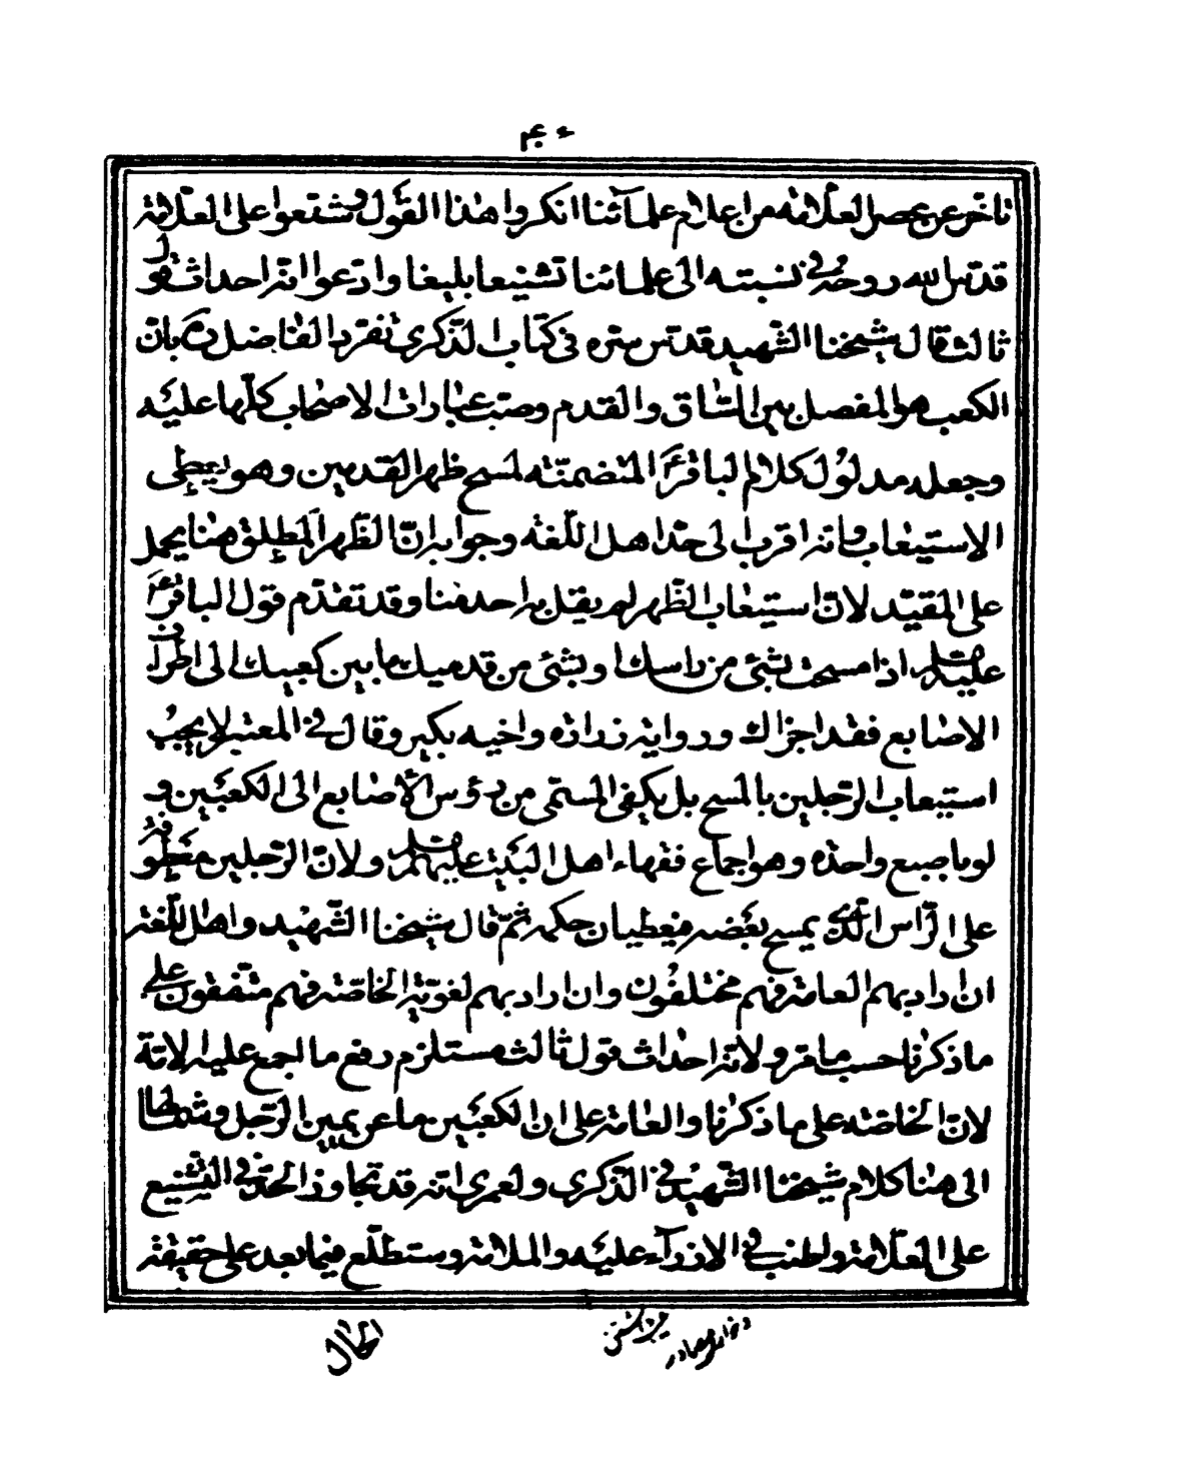 تاخّر عن عصر العلّامه من اعلام علمآئنا انكروا هذا القول وشنّعوا على العلّامة
قدّس الله روحه في نسبته الى علمائنا تشنيعا بليغا وادّعوا انّه احداث قول
ثالث قال شيخنا الشّهيد قدّس سرّه فى كتاب الذّكرى تفرد الفاضل ره بانّ
الكعب هو المفصل بين السّاق والقدم وصبّ عبارات الاصحاب كلّها عليه
وجعله مدلول كلام الباقر ع المتضمنّه لمسح ظهر القدمين وهو يعطى
الاستيعاب وبانه اقرب الى حدّ اهل اللّغه وجوابه انّ الظّهر المطلق هنا يحمل
على المقيّد لانّ استيعاب الظّهر لم يقل به احد منّا وقد تقدّم قول الباقر ع
عليه السلام اذا مسحت بشئ من راسك او بشئ من قدميك ما بين كعبيك الى اطراف
الاصابع فقد اجزاك ورواية زرارة واخيه بكير وقال في المعتبر لا يجب
استيعاب الرّجلين بالمسح بل يكفى المسمّى من رؤس الأصابع الى الكعبين و
لو باصبع واحدة وهو اجماع فقهاء اهل البيت عليهم السلام ولانّ الرّجلين معطوفة
على الرّاس الّذى يمسح بعضه فيعطيان حكمه ثمّ قال شيخنا الشّهيد واهل اللّغة
ان اراد بهم العامة فهم مختلفون وان اراد بهم لغويّة الخاصّة فهم متّفقون على
ما ذكرنا حسب ما مرّ ولانّه احداث قول ثالث مستلزم رفع ما اجمع عليه الامّة
لانّ الخاصّه على ما ذكرنا والعامة على ان الكعبين ما عن يمين الرّجل وشمالها
الى هنا كلام شيخنا الشّهيد في الذّكرى ولعمرى انه قد تجاوز الحدّ في التّشنيع
على العلّامة واطنب في الازرآء عليه والملامة وستطّلع فيما بعد على حقيقة
الحال